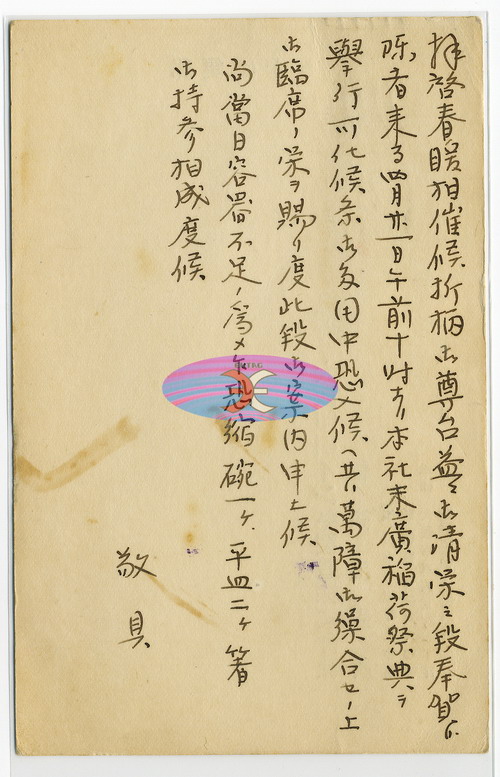 拝啓春暖相催候折柄御尊台益々御清栄之段奉賀候
陳者来る四月廿一日午前十時ヨリ本社末廣稲荷祭典ヲ
擧行可仕候条御多用中恐入候ヘ共萬障御繰合セ上
御臨席ノ栄ヲ賜リ度此段御案内申上候
尚當日容器不足ノ為メ乍恐縮碗一ケ平皿二ケ箸
御持参相成度候
敬具